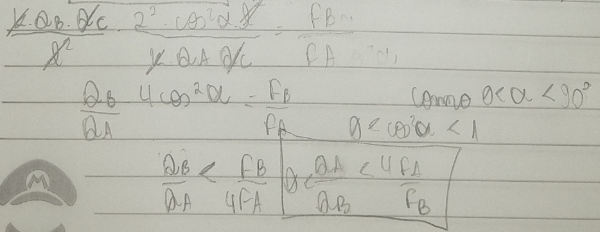 K · QB · QC / x² · 2² · cos²α · x² / K · QA · QC = FB / FA
QB / QA · 4 cos²α = FB / FA como 0 < α < 90°
0 < cos²α < 1
QB / QA < FB / 4FA 0 < QA / QB < 4FA / FB
M